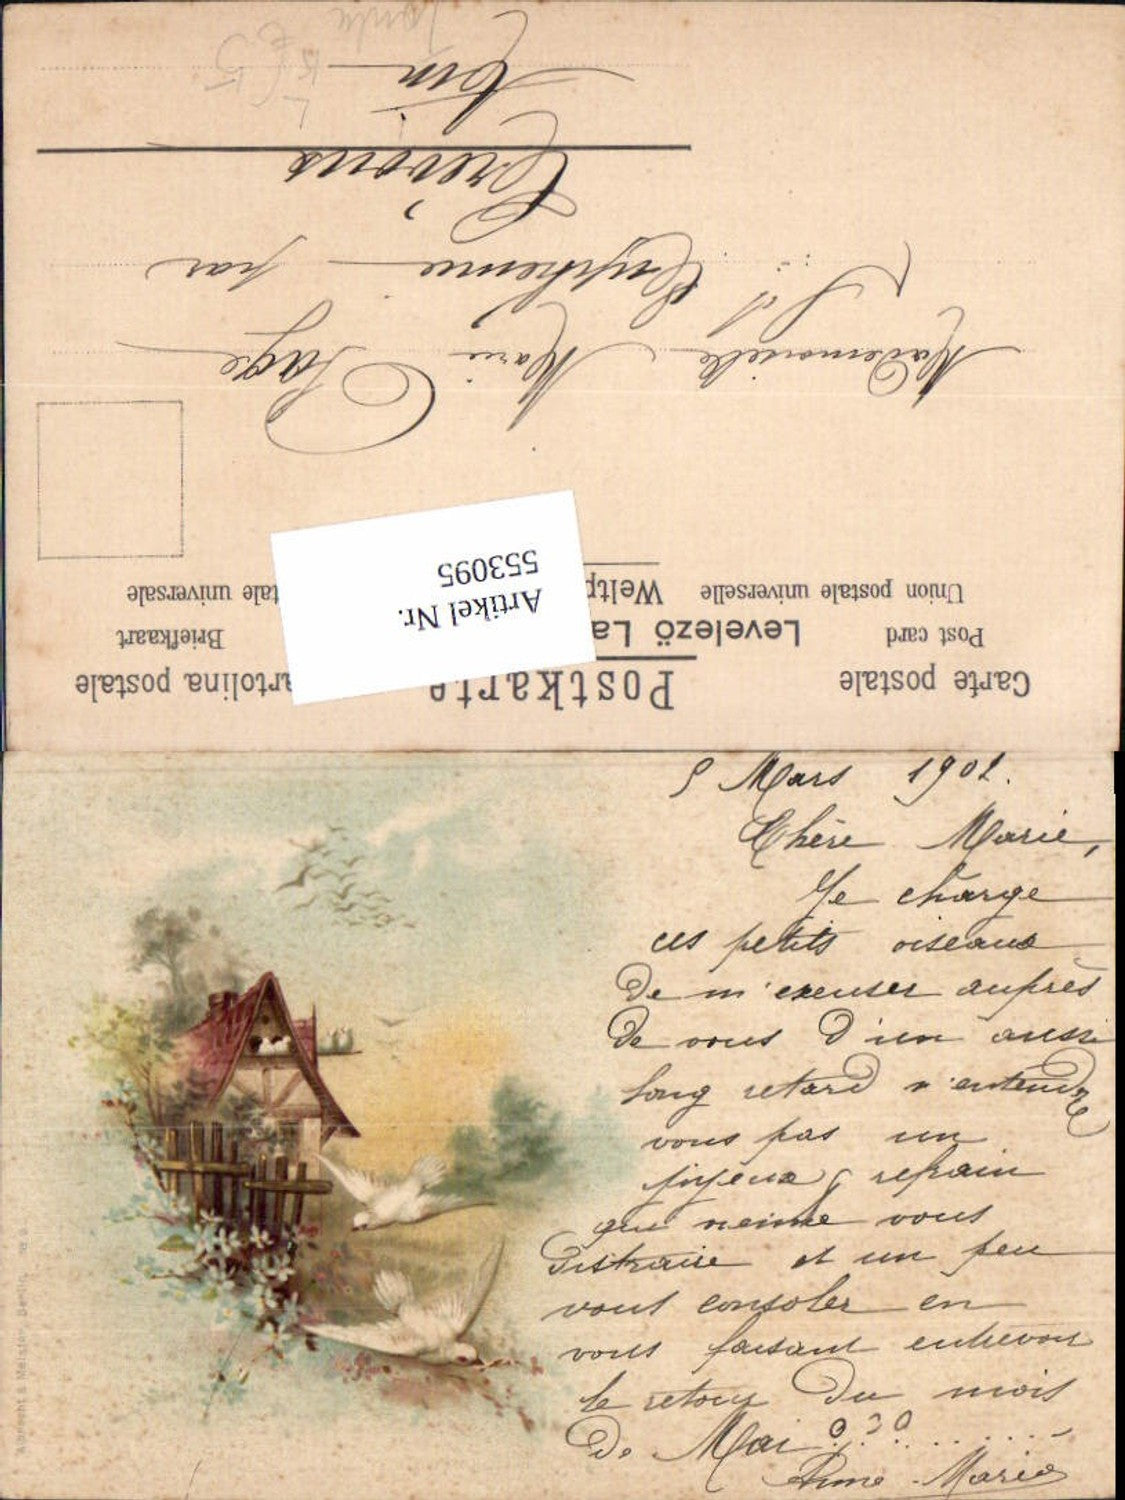 Carte postale Postkarte artolina postale
Post card Levelező La Briefkaart
Union postale universelle Weltp tale universale
Artikel Nr.
553095
Mademoiselle Marie Page
St Euphémie par
Trévoux
Ain
5 Mars 1902.
Chère Marie,
Je charge
ces petits oiseaux
de m'excuser auprès
de vous d'un aussi
long retard n'entendez
vous pas un
joyeux refrain
qui vous
distraire et un peu
vous consoler en
vous faisant entrevoir
le retour du mois
de Mai ???......
Anne-Marie
Albrecht & Meister, Berlin.